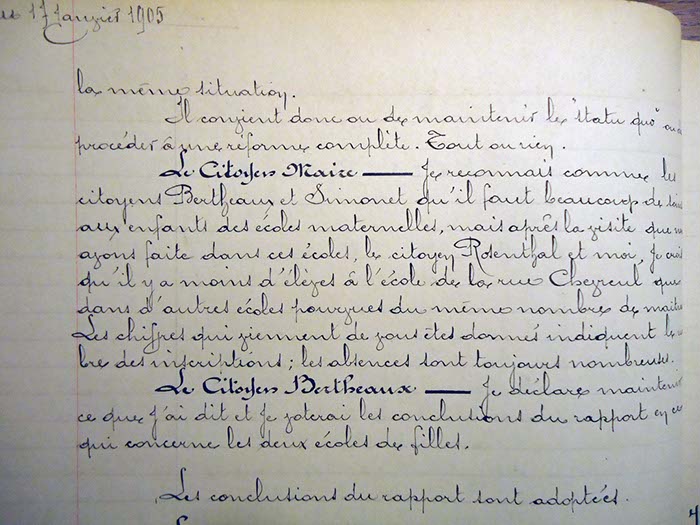 17 Janvier 1905
la même situation.
Il convient donc ou de maintenir le "statu quo" ou
procéder à une réforme complète. Tout ou rien.
Le Citoyen Maire — Je reconnais comme les
citoyens Bertheaux et Simonet qu'il faut beaucoup de
aux enfants des écoles maternelles, mais après la visite que
avons faite dans ces écoles, le citoyen Rosenthal et moi, je crois
qu'il y a moins d'élèves à l'école de la rue Chevreul que
dans d'autres écoles pourvues du même nombre de
Les chiffres qui viennent de vous être donnés indiquent le
bre des inscriptions; les absences sont toujours nombreuses.
Le Citoyen Bertheaux — Je déclare maintenir
ce que j'ai dit et je voterai les conclusions du rapport en ce
qui concerne les deux écoles de filles.
Les conclusions du rapport sont adoptées.